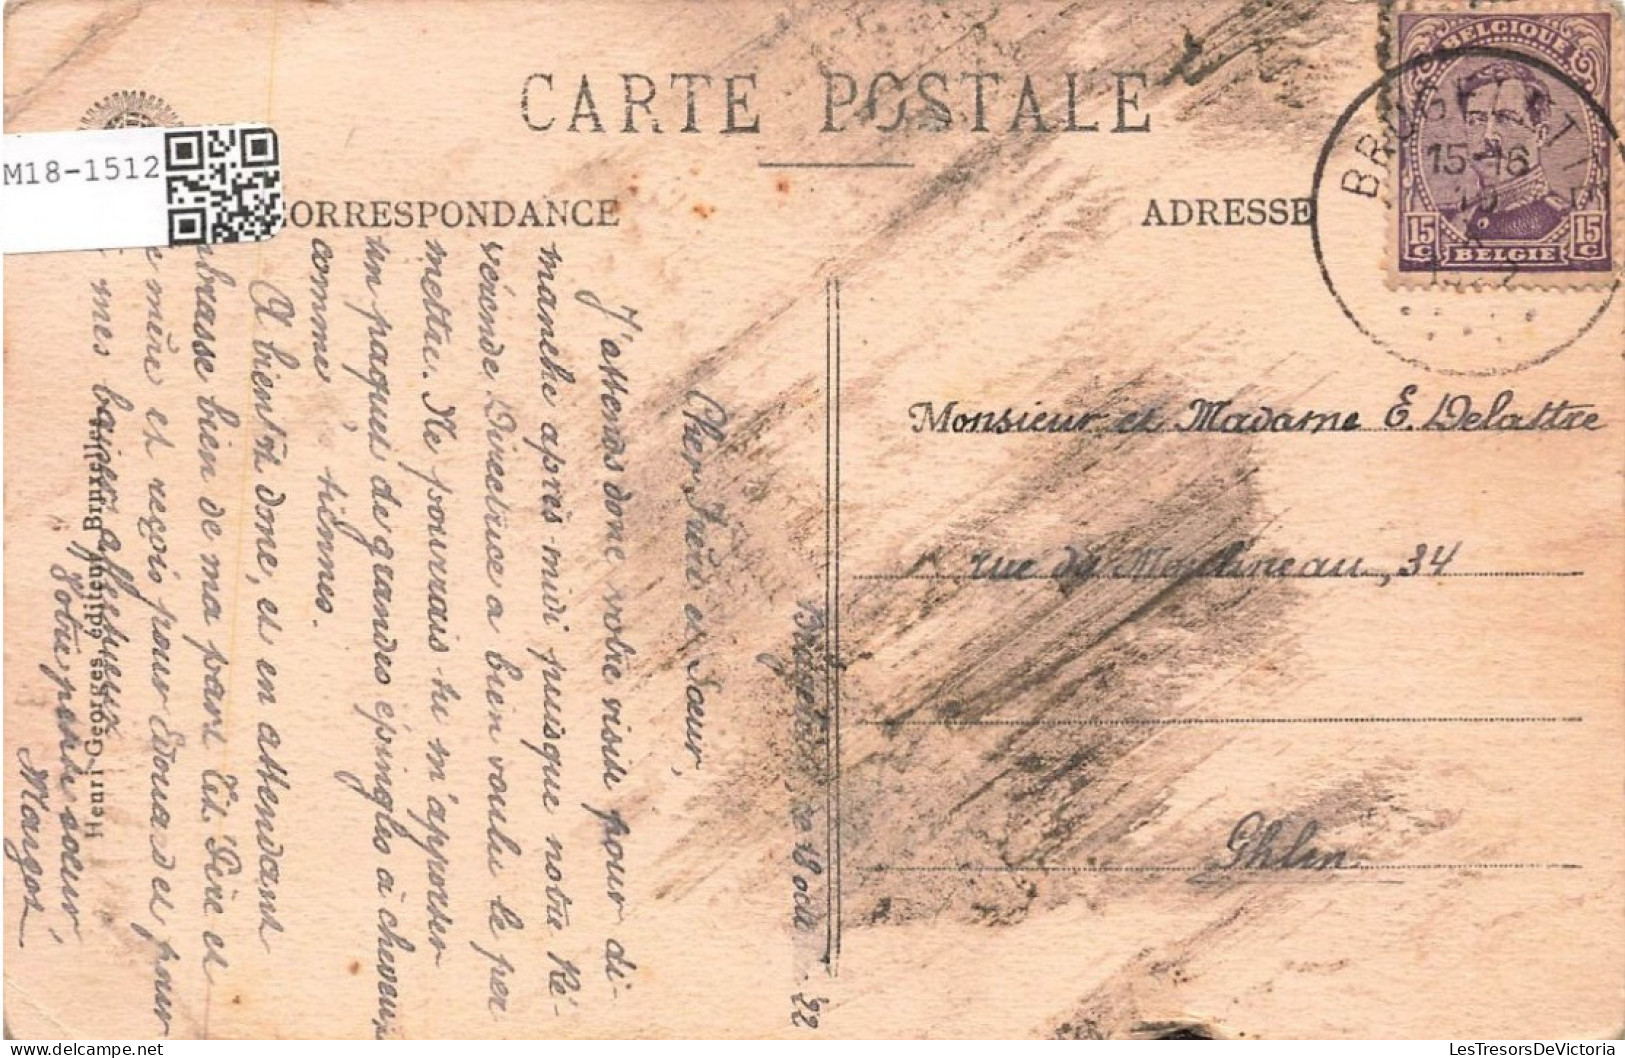 CARTE POSTALE
M18-1512
ORRESPONDANCE
ADRESSE
BELGIQUE
15-16
15 C
15 C
BELGIE
Monsieur et Madame E. Delattre
rue du Moulineau, 34
Ghlin
le 18 oct. 22
Cher Frère et Sœur,
J'attends donc votre visite pour di-
manche après-midi puisque notre Ré-
vérende Directrice a bien voulu le per
mettre. Ne pourrais tu m'apporter
un paquet de grandes épingles à cheveux
comme tiennes.
A bientôt donc, et en attendant
brasse bien de ma part Tit. Père et
e mère et reçois pour Edouard et pour
mes baisers affectueux
Votre petite sœur,
Margot
Henri Georges, éditeur, Bruxelles
LesTresorsDeVictoria